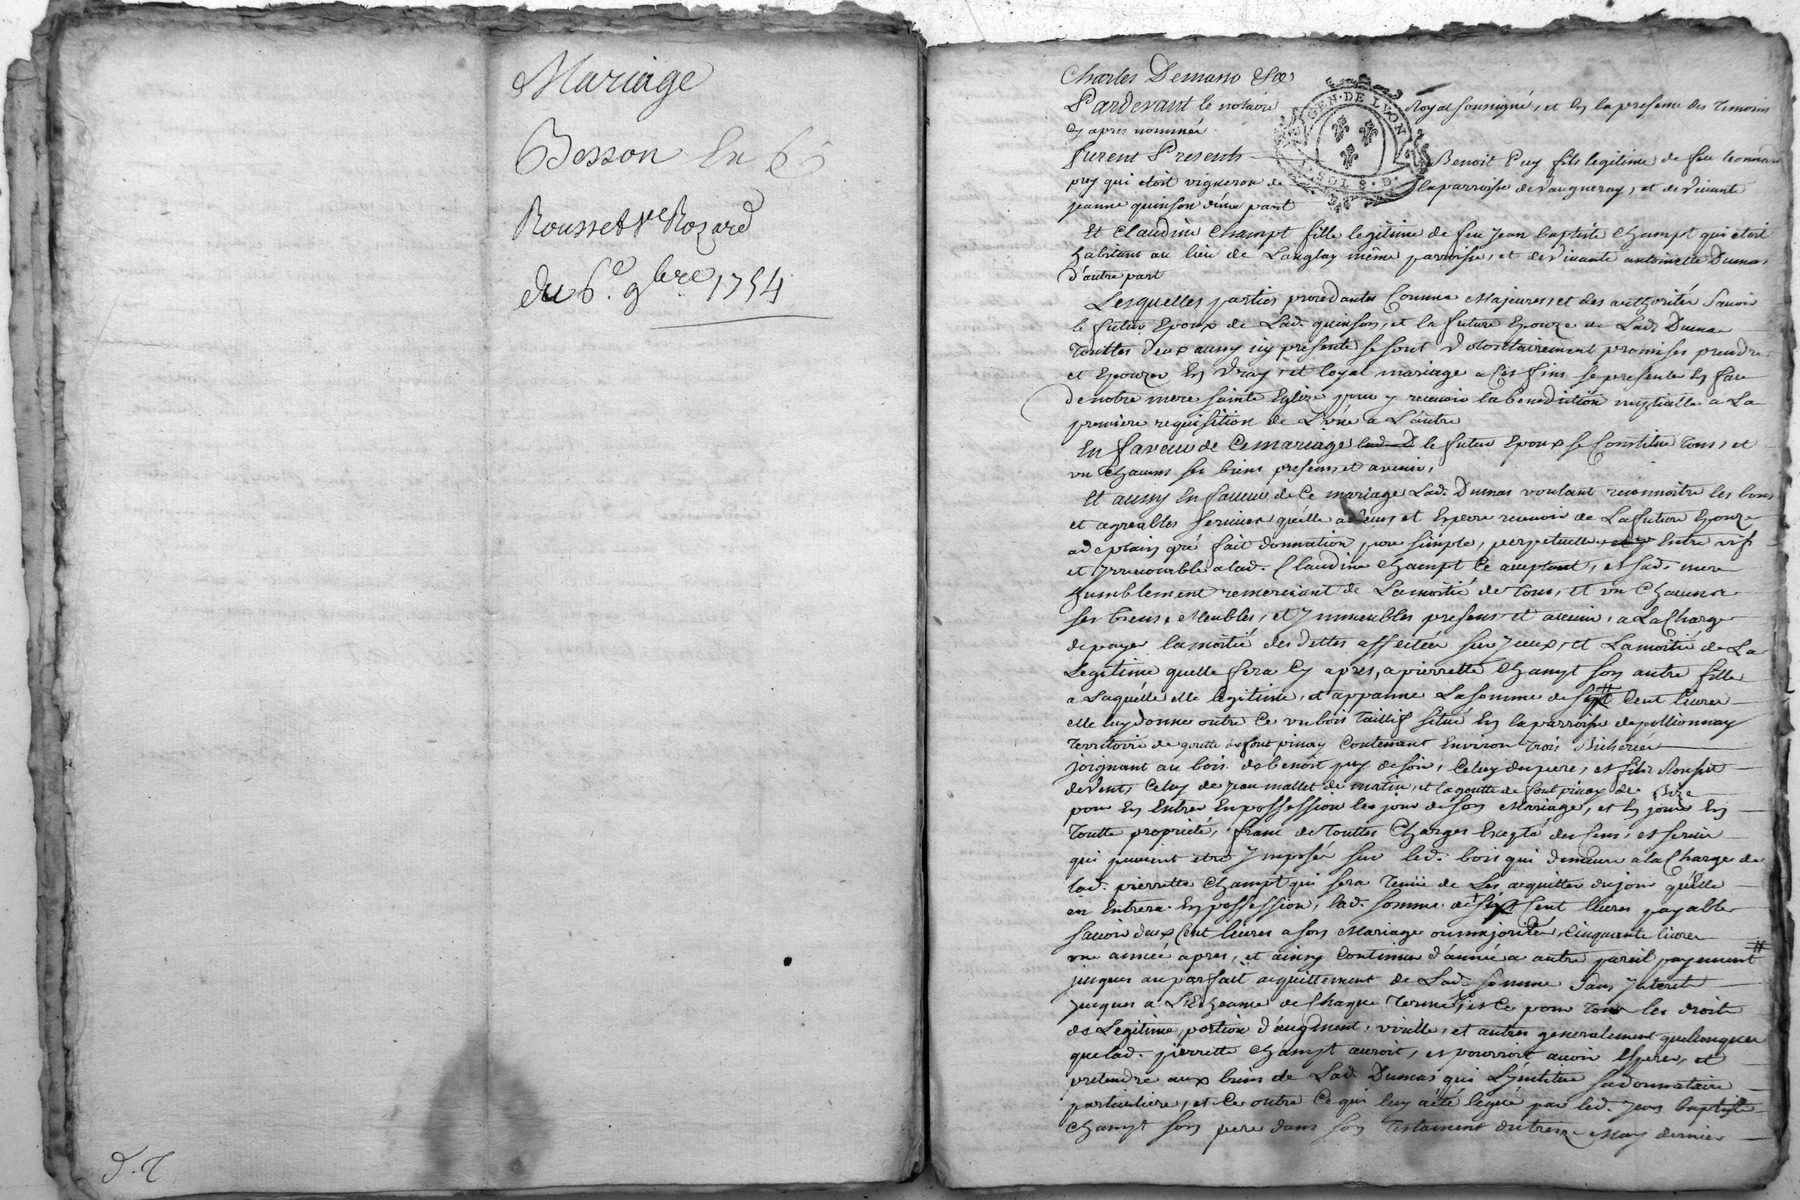 Mariage
Besson
Rousset Ve Rozard
du 6e. 9bre 1754
Charles Demano
Pardevant le notaire Royal soussigné, et En la presence des temoins
Cy apres nommés
GEN. DE LYON
SOL 8. D.
furent Presents Benoit Puy fils legitime de feu leonnard
puy qui etoit vigneron de la parroisse de Vaugneray, et de vivante
jeanne quinson d'une part
Et Claudine Champt fille legitime de feu jean baptiste Champt qui etoit
habitant au lieu de Langlay même parroisse, et de vivante antoinette Dumas
d'autre part
Lesquelles parties procedantes Comme Majeures, et des authorités Savoir
le futur Epoux de Lad. quinson, et la future Epouze de Lad. Dumas
touttes deux aussy icy presente se sont volontairement promises prendre
et Epouzer En vray, et loyal mariage a Ces fins se presenter En face
de notre mere sainte Eglize pour y recevoir la benediction nuptialle a La
premiere requisition de L'une a L'autre
En faveur de Ce mariage le futur Epoux se Constitue tous, et
un Chacuns ses biens presens, et avenir,
Et aussy En faveur de Ce mariage Lad. Dumas voulant reconnoitre les bons
et agreables services qu'elle a et Espere recevoir de La future Epouze
a de plain gré fait donnation pure simple, perpetuelle Entre vifs
et Irrevocable a lad. Claudine Champt Ce acceptant, et sad. mere
humblement remerciant de La moitié de tous, et un Chacuns
ses biens, Meubles, et Immeubles presens et avenir, a La Charge
de payer la moitié des dettes affectées sur Iceux, et La moitié de La
Legitime quelle fera Cy apres, a pierrette Champt son autre fille
a Laquelle elle legitime, et appanne La somme de Cent livres
elle luy donne outre Ce un bois taillif situé En la parroisse de pollionnay
territoire de goutte de font pinay Contenant Environ trois Bicherées
joignant au bois de benoit puy de soir, Celuy du pere, et fils
de vent, Celuy de jean mallet de matin, et la goutte de font pinay de Bize
pour En Entrer En possession le jour de son Mariage, et En jouir En
toutte proprieté, franc de touttes Charges Excepté des Cens, et servis
qui peuvent etre Imposés sur led. bois qui demeure a la Charge de
lad. pierrette Champt qui sera tenüe de Les acquitter du jour qu'elle
en Entrera En possession, lad. somme de Cent livres payable
savoir deux Cent livres a son Mariage ou majorité, Cinquante livres
une année apres, et ainsy Continuer d'année a autre pareil payement
jusques au parfait acquittement de Lad. somme sans Interet
jusques a L'Echeance de Chaque terme, et Ce pour tous les droits
de Legitime, portion d'augment, virille, et autres generalement quelconques
que lad. pierrette Champt auroit, et pourroit avoir Esperer, et
pretendre aux biens de Lad. Dumas qui L'institue sa donnataire
particuliere, et Ce outre Ce qui luy a eté legué par led. jean baptiste
Champt son pere dans son testament du treize May dernier